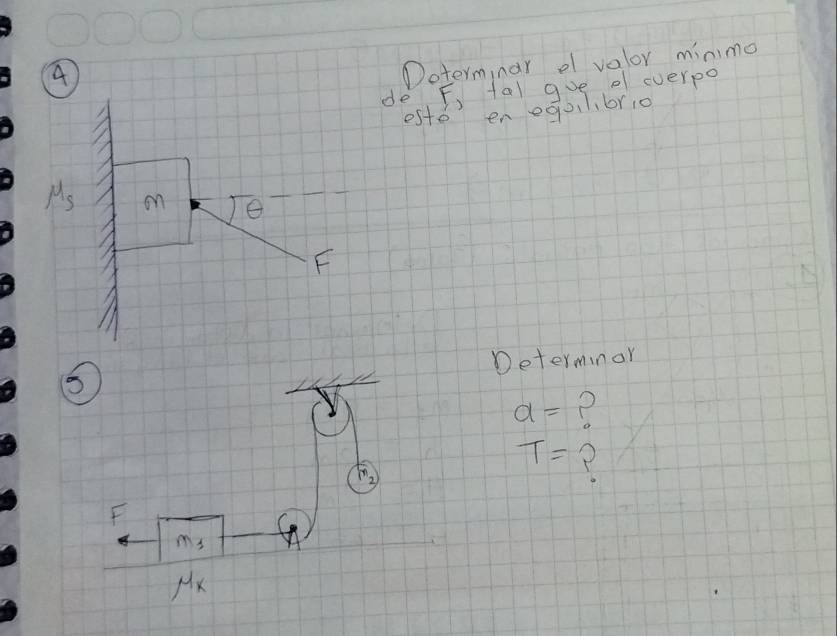 4
Determinar el valor mínimo
de F, tal que el cuerpo
esté en equilibrio
μs
m
θ
F
5
Determinar
a = ?
T = ?
m2
F
m1
μk